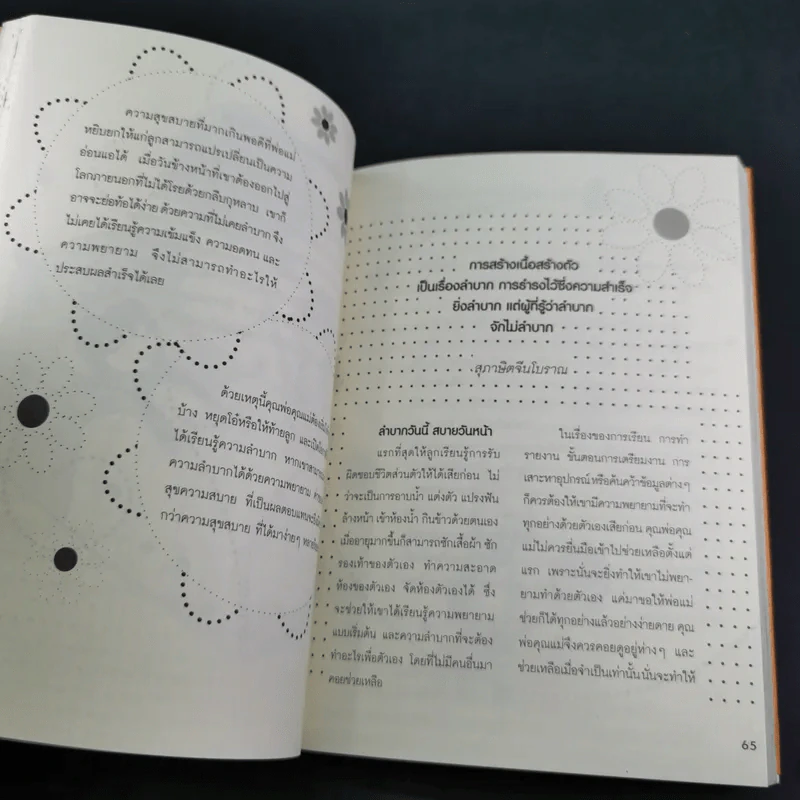 ความสุขสบายที่มากเกินพอดีที่พ่อแม่
หยิบยกให้แก่ลูกสามารถแปรเปลี่ยนเป็นความ
อ่อนแอได้ เมื่อวันข้างหน้าที่เขาต้องออกไปสู่
โลกภายนอกที่ไม่ได้โรยด้วยกลีบกุหลาบ เขาก็
อาจจะย่อท้อได้ง่าย ด้วยความที่ไม่เคยลำบาก จึง
ไม่เคยได้เรียนรู้ความเข้มแข็ง ความอดทน และ
ความพยายาม จึงไม่สามารถทำอะไรให้
ประสบผลสำเร็จได้เลย
ด้วยเหตุนี้คุณพ่อคุณแม่ต้อง
บ้าง หยุดโอ๋หรือให้ท้ายลูก และ
ได้เรียนรู้ความลำบาก หากเขา
ความลำบากได้ด้วยความพยายาม
สุขความสบาย ที่เป็นผลตอบแทน
กว่าความสุขสบาย ที่ได้มาง่ายๆ
การสร้างเนื้อสร้างตัว
เป็นเรื่องลำบาก การธำรงไว้ซึ่งความสำเร็จ
ยิ่งลำบาก แต่ผู้ที่รู้ว่าลำบาก
จักไม่ลำบาก
สุภาษิตจีนโบราณ
ลำบากวันนี้ สบายวันหน้า
แรกที่สุดให้ลูกเรียนรู้การรับ
ผิดชอบชีวิตส่วนตัวให้ได้เสียก่อน ไม่
ว่าจะเป็นการอาบน้ำ แต่งตัว แปรงฟัน
ล้างหน้า เข้าห้องน้ำ กินข้าวด้วยตนเอง
เมื่ออายุมากขึ้นก็สามารถซักเสื้อผ้า ซัก
รองเท้าของตัวเอง ทำความสะอาด
ห้องของตัวเอง จัดห้องตัวเองได้ ซึ่ง
จะช่วยให้เขาได้เรียนรู้ความพยายาม
แบบเริ่มต้น และความลำบากที่จะต้อง
ทำอะไรเพื่อตัวเอง โดยที่ไม่มีคนอื่นมา
คอยช่วยเหลือ
ในเรื่องของการเรียน การทำ
รายงาน ขั้นตอนการเตรียมงาน การ
เสาะหาอุปกรณ์ หรือค้นคว้าข้อมูลต่างๆ
ก็ควรต้องให้เขามีความพยายามที่จะทำ
ทุกอย่างด้วยตัวเองเสียก่อน คุณพ่อคุณ
แม่ไม่ควรยื่นมือเข้าไปช่วยเหลือตั้งแต่
แรก เพราะนั่นจะยิ่งทำให้เขาไม่พยา-
ยามทำด้วยตัวเอง แค่มาขอให้พ่อแม่
ช่วยก็ได้ทุกอย่างแล้วอย่างง่ายดาย คุณ
พ่อคุณแม่จึงควรคอยดูอยู่ห่างๆ และ
ช่วยเหลือเมื่อจำเป็นเท่านั้น นั่นจะทำให้
65